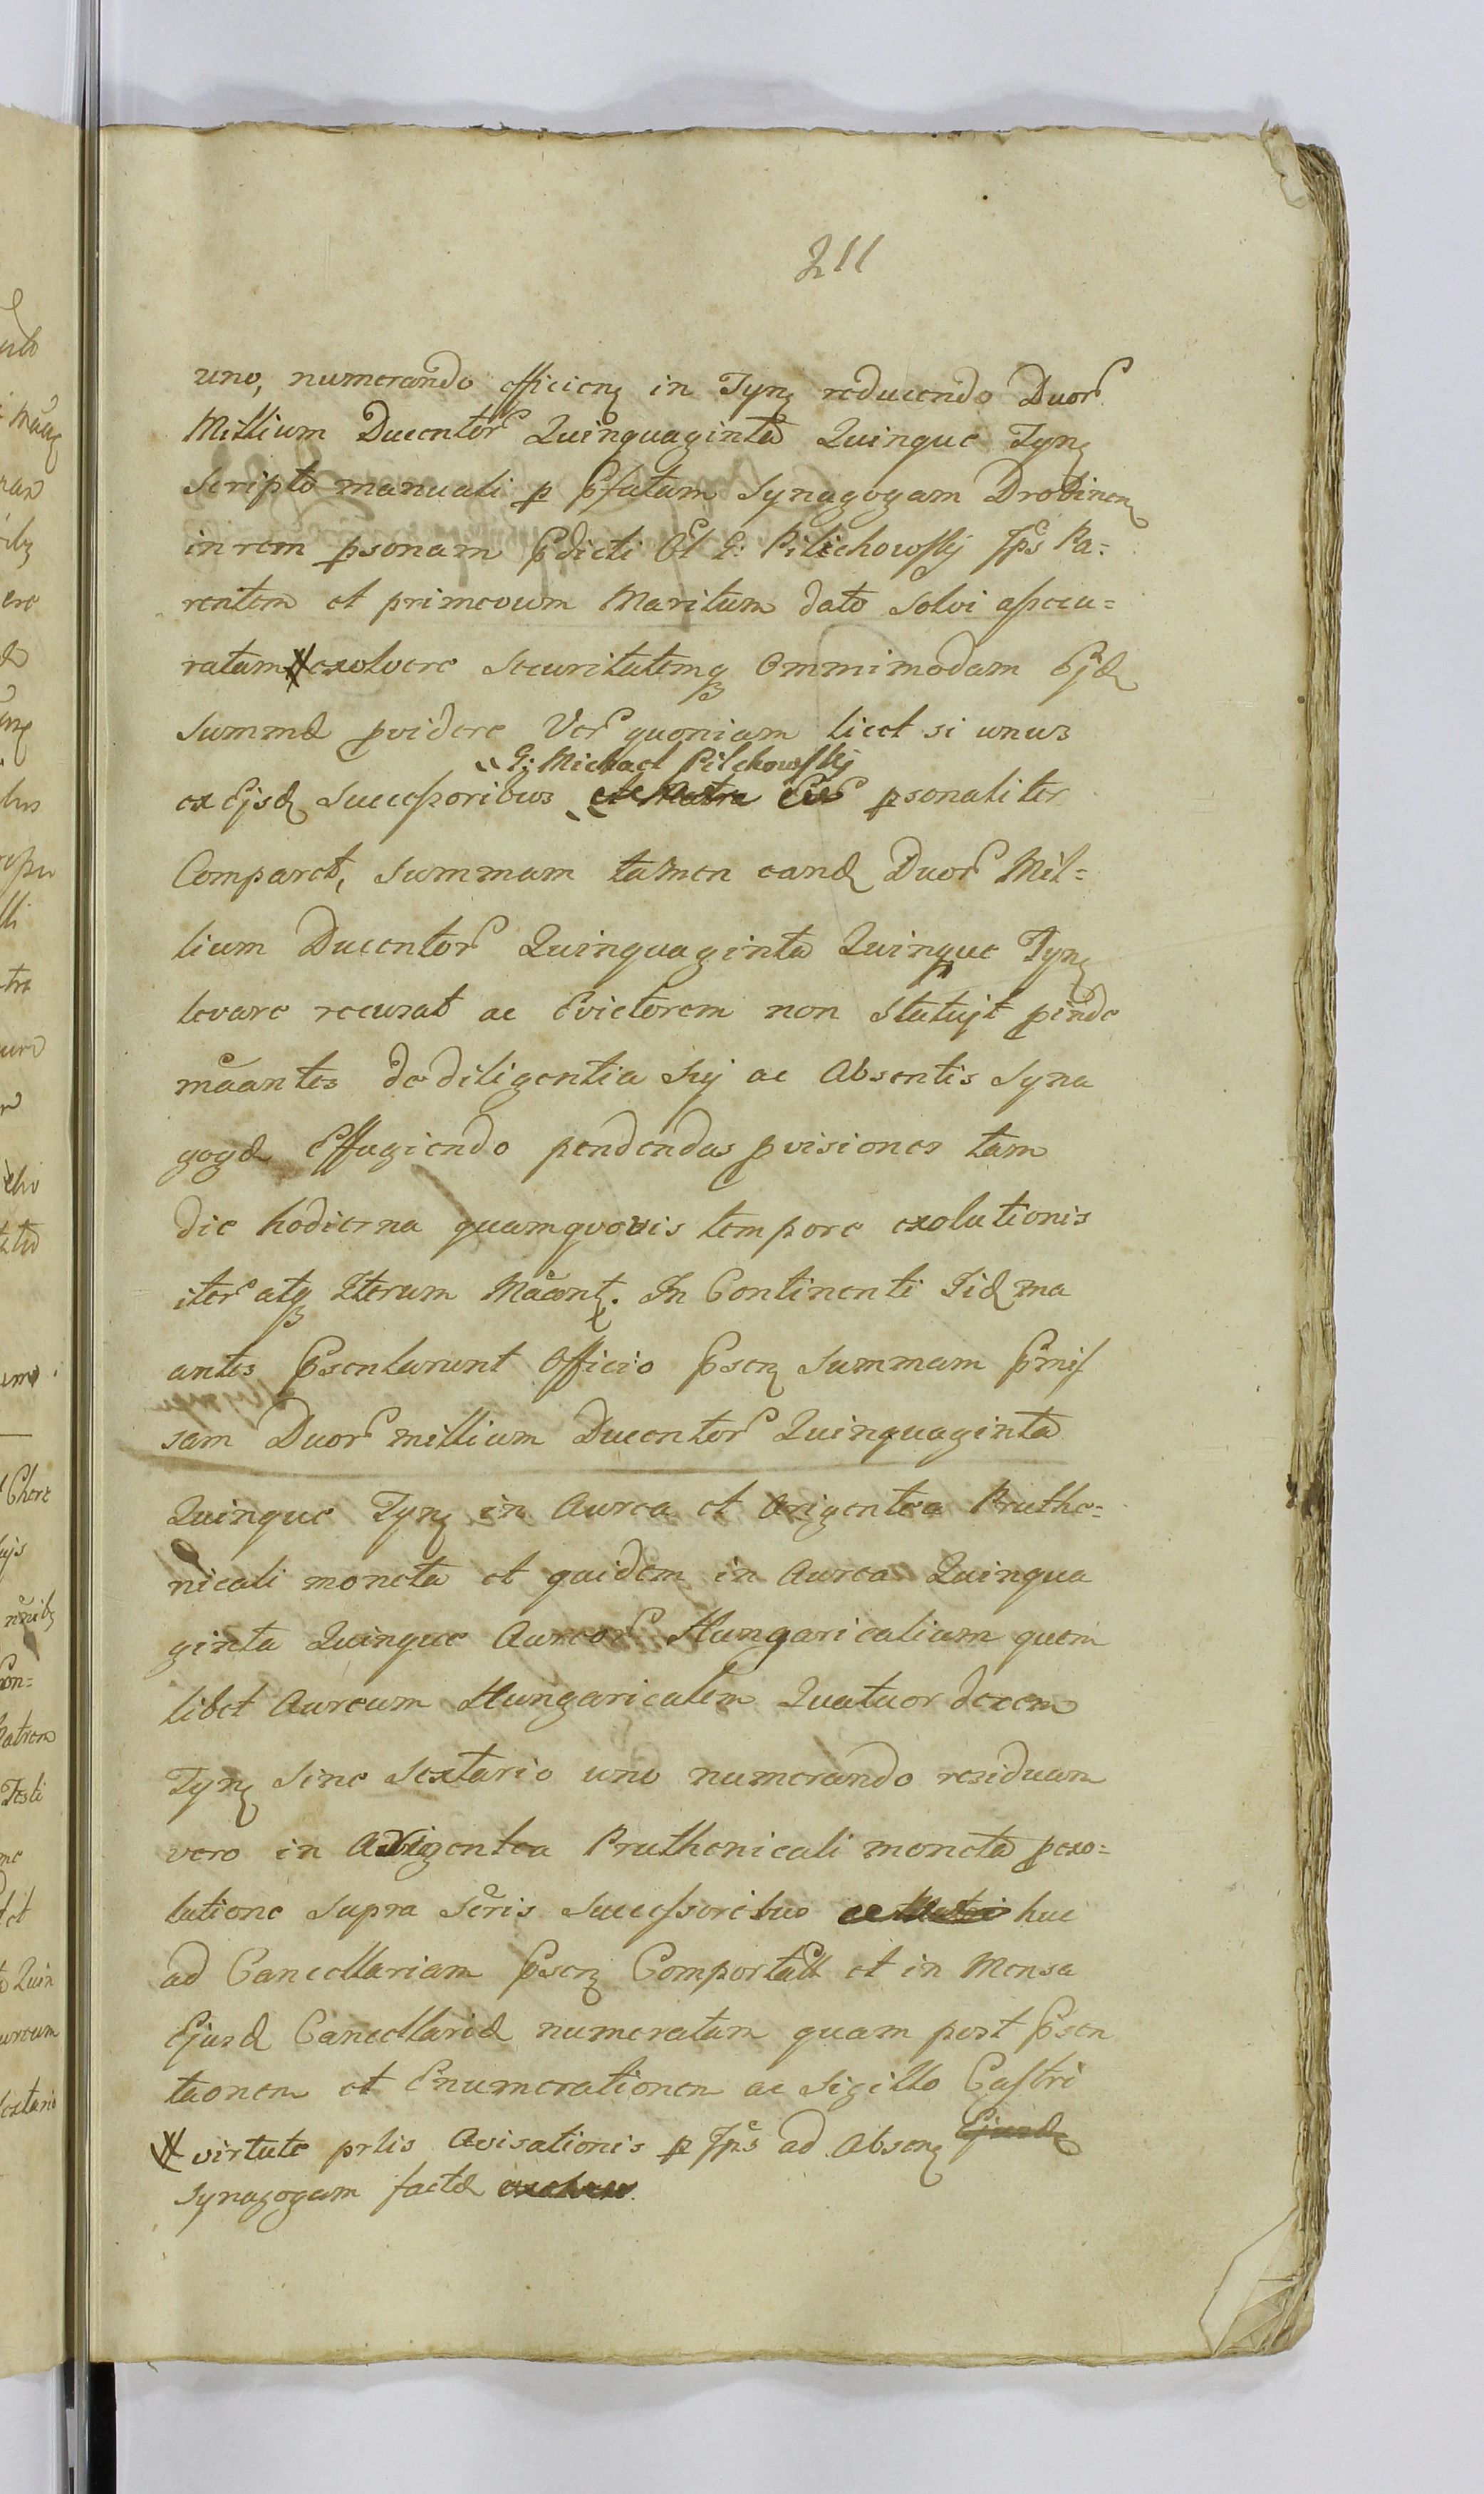 211
uno, numerando efficien in Tyn reducendo Duor
Millium Ducentor Quinquaginta Quinque Tyn
Scripto manuali p Pfatam Synagogam Drobinen
in rem psonam Pdicti Ol G: Pilichowskij Jps Pa=
rentem et primevum Maritum dato Solvi assecu=
ratam # exolvere Securitatemq Ommimodam Ejd
Summæ pvidere Ver quoniam licet si unus
G: Michael Pilchowskij
ex Ejsd Successoribus psonaliter
Comparet, Summam tamen eand Duor Mil=
lium Ducentor Quinquaginta Quinque Tyn
levare recusat ac Evictorem non Statuit pinde
mãantes de diligentia Sui ac Absentis Syna
gogæ Effugiendo pendendas pvisiones tam
die hodierna quamquovis tempore exolutionis
iter atq Iterum Mãant. In Continenti Iid ma
antes Psentarunt Officio Psen Summam Pmis
sam Duor millium Ducentor Quinquaginta
Quinque Tyn in Aurea et Arigentea Pruthe=
nicali moneta et quidem in Aurea Quinqua
ginta Quinque Aureor Hungaricalium quem
libet Aureum Hungaricalem Quatuor decem
Tyn Sine Sextario uno numerando residuam
vero in Arigentea Pruthenicali moneta pexo=
lutione Supra Scris Successoribus huc
ad Cancellariam Psen Comportatt et in Mensa
Ejusd Cancellariæ numeratam quam post Psen
taonem et Enumerationem ac Sigillo Castri
# virtute prlis Avisationis p Jps ad Absen Ejusd
Synagogam factæ